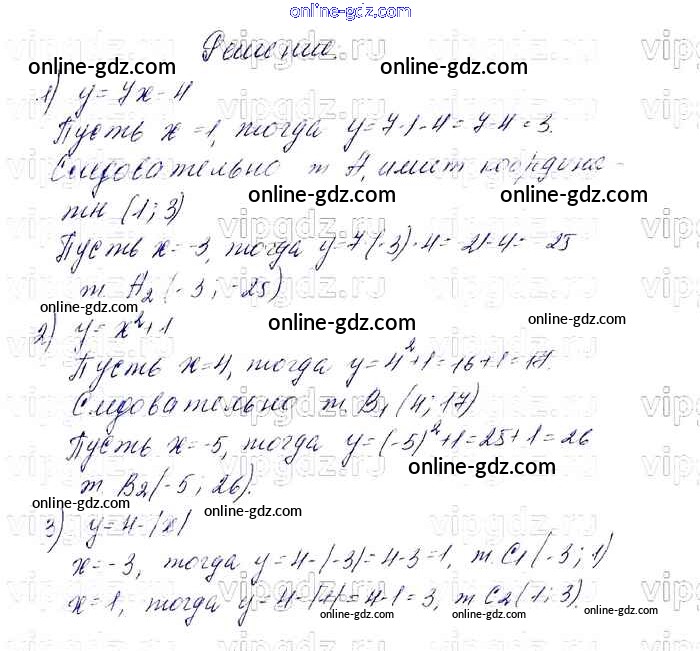 online-gdz.com
Решение
online-gdz.com online-gdz.com
1) y=7x-4
Пусть x=1, тогда y=7·1-4=7-4=3.
Следовательно т A₁ имеет координа-
online-gdz.com online-gdz.com
ты (1; 3)
Пусть x=-3, тогда y=7·(-3)-4=-21-4=-25
т. A₂ (-3; -25)
online-gdz.com online-gdz.com online-gdz.com
2) y=x²+1
Пусть x=4, тогда y=4²+1=16+1=17.
Следовательно т. B₁ (4; 17)
Пусть x=-5, тогда y=(-5)²+1=25+1=26
online-gdz.com
т. B₂(-5; 26).
online-gdz.com online-gdz.com
3) y=4-|x|
x=-3, тогда y=4-|-3|=4-3=1, т. C₁(-3; 1)
x=1, тогда y=4-|1|=4-1=3, т. C₂(1; 3).
online-gdz.com online-gdz.com online-gdz.com